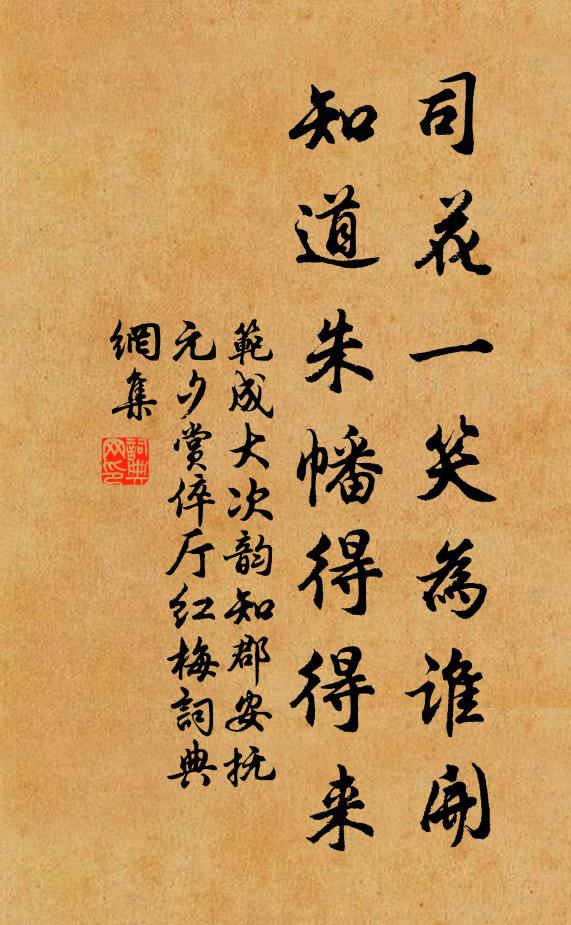 司花一笑為谁開
知道朱幡得得来
範成大次韵知郡安抚
元夕赏倅厅红梅詞典
網集
詞典
网印